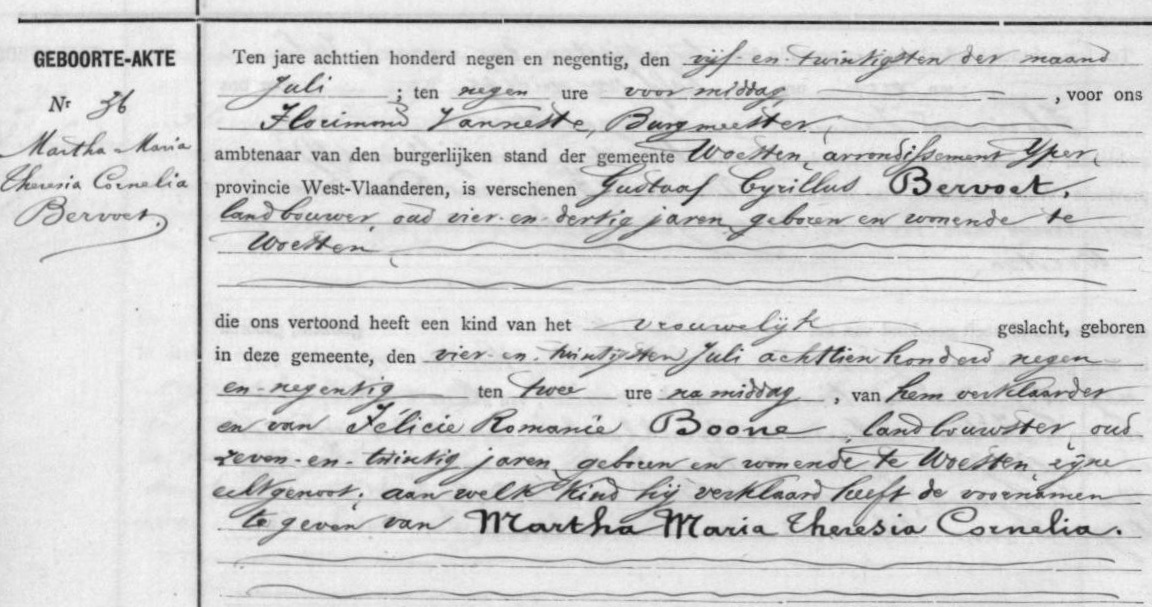 GEBOORTE-AKTE
Nr 36
Martha Maria
Theresia Cornelia
Bervoet
Ten jare achttien honderd negen en negentig, den vijf-en-twintigsten der maand
Juli ; ten negen ure voormiddag , voor ons
Florimond Vanneste, Burgmeester,
ambtenaar van den burgerlijken stand der gemeente Woesten, arrondissement Yper,
provincie West-Vlaanderen, is verschenen Gustaaf Cyrillus Bervoet,
landbouwer, oud vier-en-dertig jaren, geboren en wonende te
Woesten,
die ons vertoond heeft een kind van het vrouwelijk geslacht, geboren
in deze gemeente, den vier-en-twintigsten Juli achttien honderd negen
en-negentig ten twee ure namiddag , van hem verklaarder
en van Félicie Romanie Boone, landbouwster, oud
zeven-en-twintig jaren, geboren en wonende te Woesten zijne
echtgenoot. aan welk kind hij verklaard heeft de voornamen
te geven van Martha Maria Theresia Cornelia.